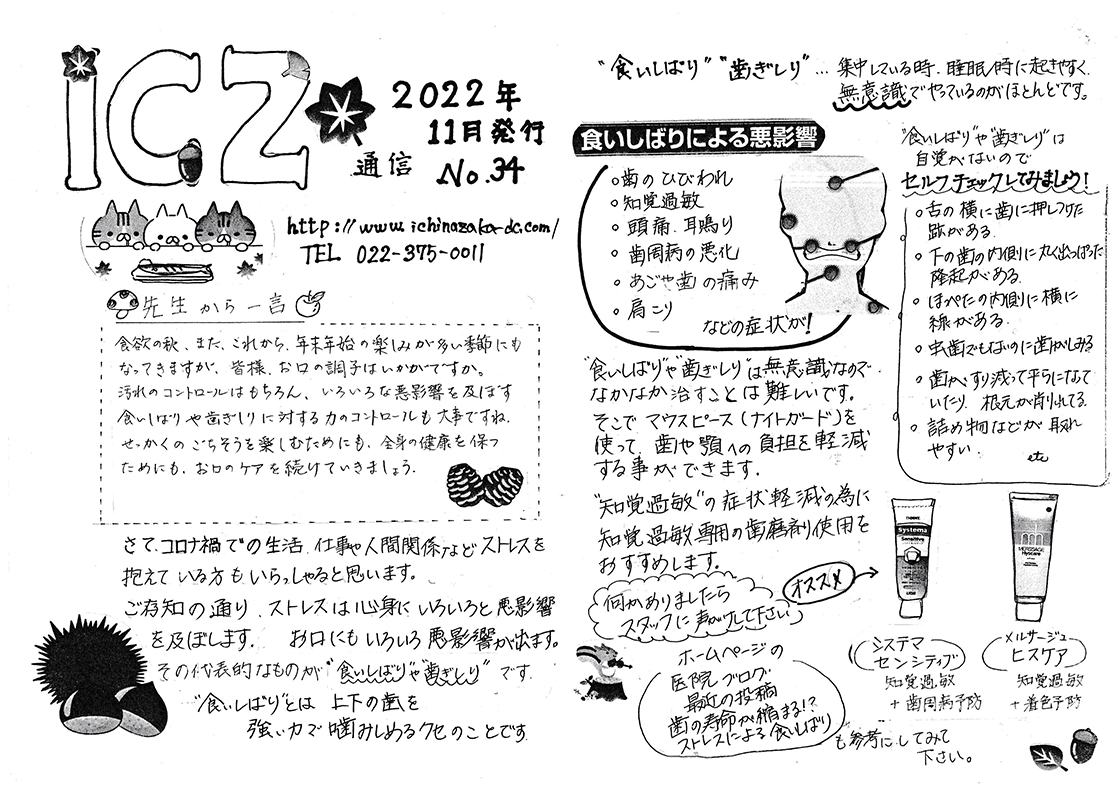 icz
通信
2022年
11月発行
No.34
http://www.ichinazaka-dc.com/
TEL 022-375-0011
先生から一言
食欲の秋、また、これから、年末年始の楽しみが多い季節にも
なってきますが、皆様、お口の調子はいかがですか。
汚れのコントロールはもちろん、いろいろな悪影響を及ぼす
食いしばりや歯ぎしりに対する力のコントロールも大事ですね。
せっかくのごちそうを楽しむためにも、全身の健康を保つ
ためにも、お口のケアを続けていきましょう。
さて、コロナ禍での生活、仕事や人間関係などストレスを
抱えている方もいらっしゃると思います。
ご存知の通り、ストレスは心身にいろいろと悪影響
を及ぼします。お口にもいろいろ悪影響が出ます。
その代表的なものが"食いしばり"や"歯ぎしり"です。
"食いしばり"とは 上下の歯を
強い力で噛みしめるクセのことです
"食いしばり" "歯ぎしり"… 集中している時、睡眠時に起きやすく、
無意識でやっているのがほとんどです。
食いしばりによる悪影響
○歯のひびわれ
○知覚過敏
○頭痛、耳鳴り
○歯周病の悪化
○あごや歯の痛み
○肩こり
などの症状が!
"食いしばり"や"歯ぎしり"は
自覚がないので
セルフチェックしてみましょう!
○舌の横に歯に押しつけた
跡がある。
○下の歯の内側に丸く出っぱった
隆起がある。
○ほっぺたの内側に横に
線がある。
○虫歯でもないのに歯がしみる
○歯がすり減って平らになって
いたり、根元が削れてる.
○詰め物などが取れ
やすい. etc
"食いしばり"や"歯ぎしり"は無意識なので
なかなか治すことは難しいです。
そこでマウスピース(ナイトガード)を
使って、歯や顎への負担を軽減
する事ができます。
"知覚過敏"の症状軽減の為に
知覚過敏専用の歯磨剤使用を
おすすめします。
オススメ
何かありましたら
スタッフに声がけして下さい
Systema
Sensitive
MERSSAGE
Hyscare
システマ
センシティブ
知覚過敏
+歯周病予防
メルサージュ
ヒスケア
知覚過敏
+着色予防
ホームページの
医院ブログ
最近の投稿
歯の寿命が縮まる!?
ストレスによる食いしばり
も参考にしてみて
下さい。